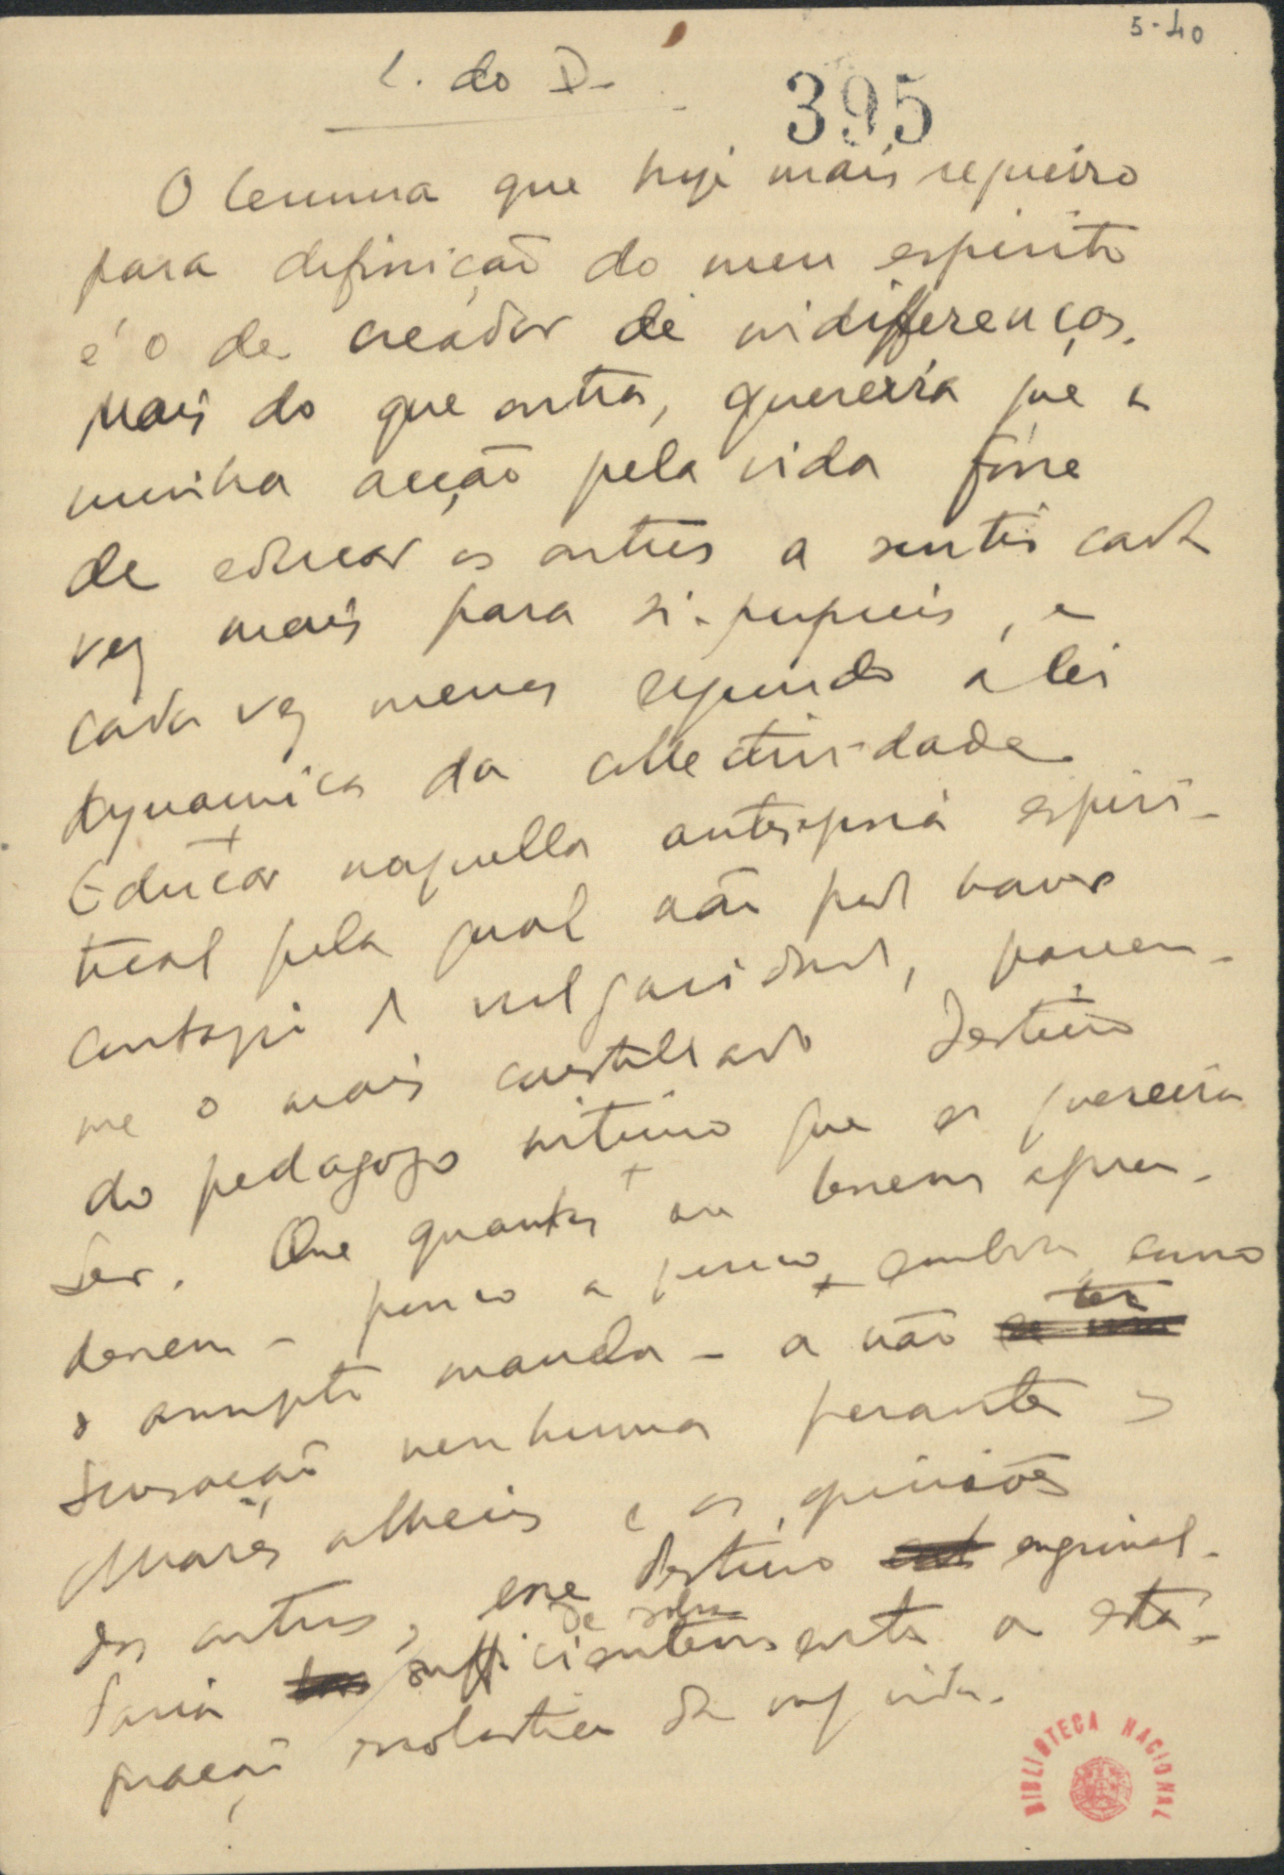 5-40
L. do D.
395
O lemma que hoje mais requeiro
para definição do meu espirito
é o de creador de indifferenças.
Mais do que outra, quereria que a
minha acção pela vida fosse
de educar os outros a sentir cada
vez mais para si-proprios, e
cada vez menos segundo a lei
dynamica da collectividade.
Educar naquella antisepsia espiri-
tual pela qual não pode haver
contagio de vulgaridade, parece-
me o mais constellado destino
do pedagogo intimo que eu quereria
ser. Que quantos me lessem apren-
dessem - pouco a pouco embora, como
o assumpto manda - a não ter
sensação nenhuma perante os
olhares alheios e as opiniões
dos outros, esse destino engrinal-
de sobra
daria sufficientemente a esta-
gnação escolastica da vida.
BIBLIOTECA NACIONAL